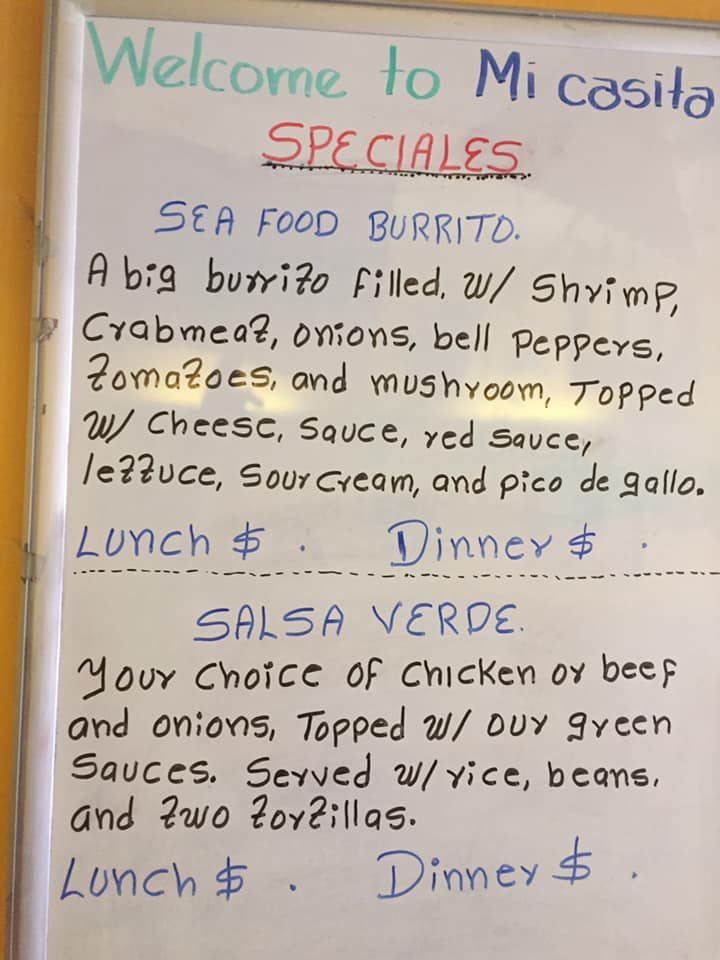 Welcome to Mi casita
SPECIALES
SEA FOOD BURRITO.
A big burrito filled, w/ Shrimp,
Crabmeat, onions, bell Peppers,
tomatoes, and mushroom, Topped
w/ Cheese, Sauce, red sauce,
lettuce, Sour Cream, and pico de gallo.
Lunch $ . Dinner $ .
SALSA VERDE.
Your Choice of Chicken or beef
and onions, Topped w/ our green
Sauces. Served w/ rice, beans,
and two tortillas.
Lunch $ . Dinner $ .